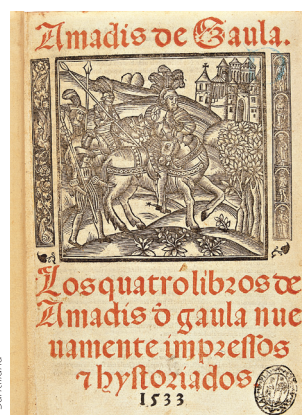 Amadis de Gaula.
Los quatro libros de
Amadis d̓ gaula nue
uamente impressos
⁊ hystoriados
1533